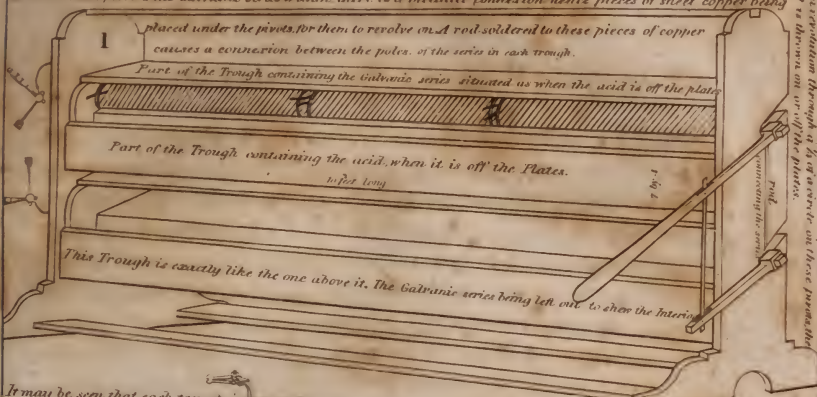 placed under the pivots, for them to revolve on. A rod soldered to these pieces of copper
1
causes a connexion between the poles, of the series in each trough.
Part of the Trough containing the Galvanic series situated as when the acid is off the plates
Part of the Trough containing the acid, when it is off the Plates.
This Trough is exactly like the one above it. The Galvanic series being left out to shew the Interior
rod
connecting the series
a revolution through a ¼ of a circle on these pivots, the
is thrown on or off the plates.
It may be seen that each